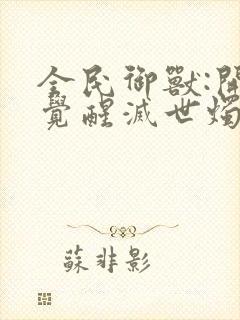 全民御獸:開
覺醒滅世燭
蘇非影